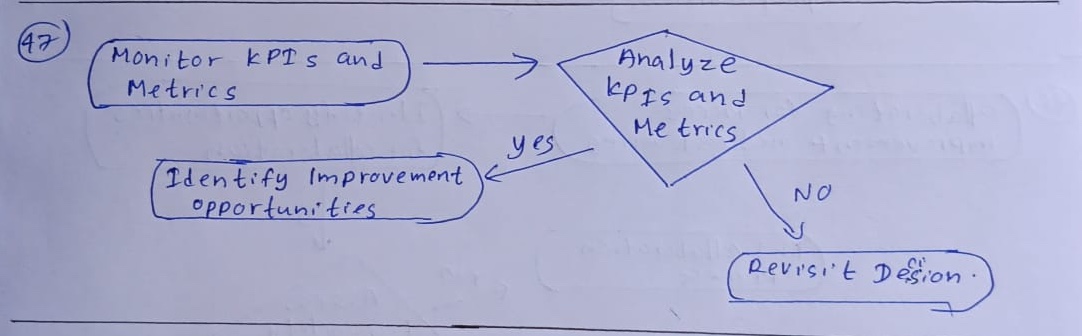 47
Monitor KPIs and
Metrics
Analyze
KPIs and
Metrics
yes
Identify Improvement
opportunities
NO
Revisit